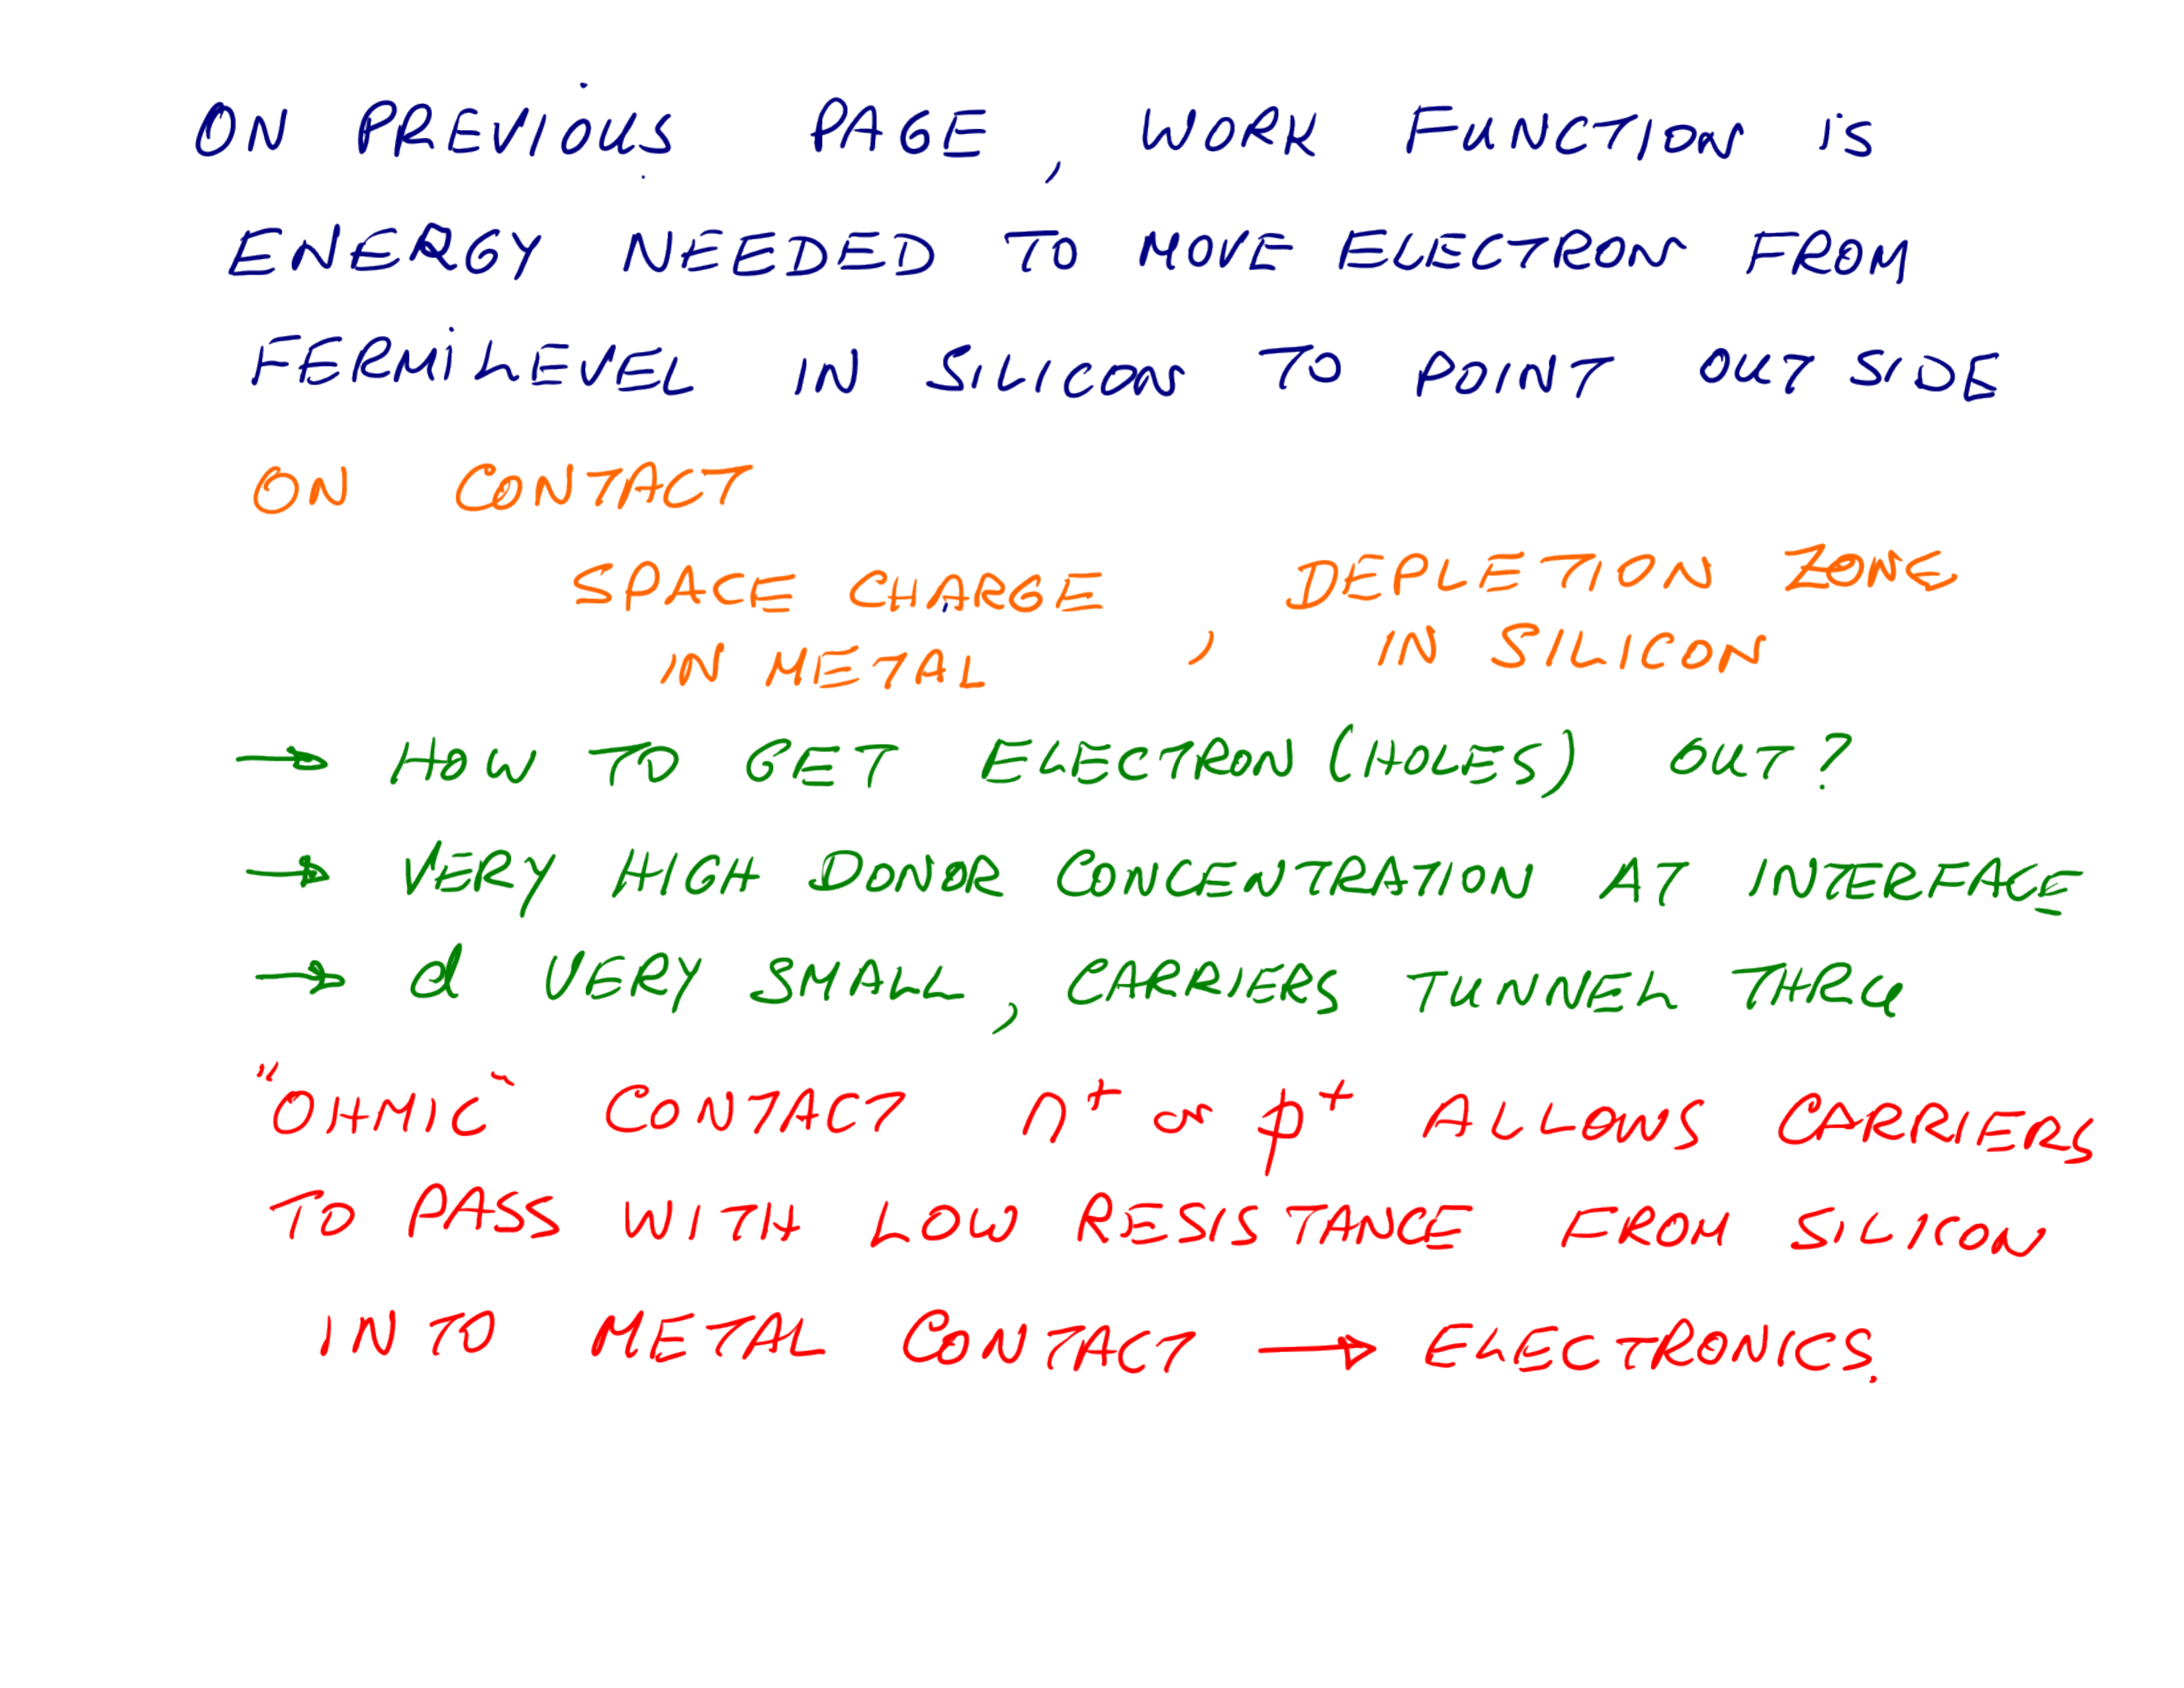 ON PREVIOUS PAGE, WORK FUNCTION IS
ENERGY NEEDED TO MOVE ELECTRON FROM
FERMI LEVEL IN SILICON TO POINT OUTSIDE
ON CONTACT
SPACE CHARGE DEPLETION ZONE
IN METAL , IN SILICON
→ HOW TO GET ELECTRON (HOLES) OUT?
→ VERY HIGH DONOR CONCENTRATION AT INTERFACE
→ d VERY SMALL, CARRIERS TUNNEL THRU
"OHMIC" CONTACT n⁺ or p⁺ ALLOWS CARRIERS
TO PASS WITH LOW RESISTANCE FROM SILICON
INTO METAL CONTACT → ELECTRONICS.